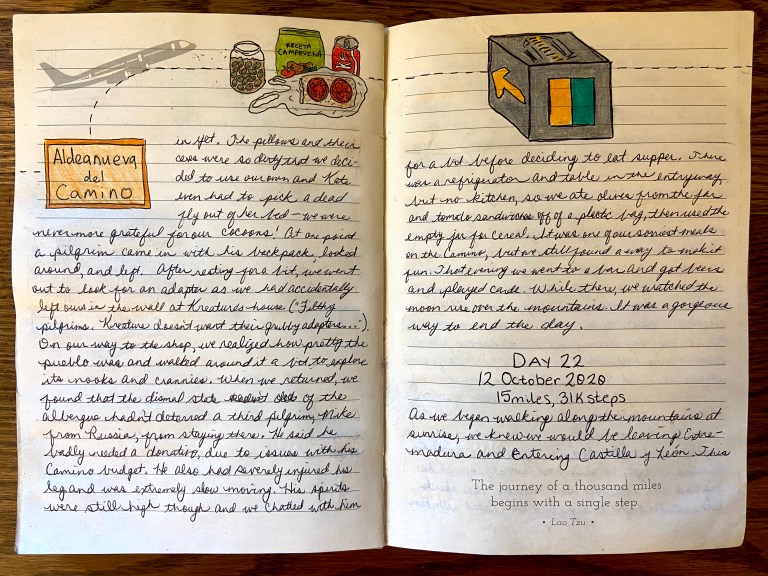 RECETA
CAMPESINA
Aldeanueva
del
Camino
in yet. The pillows and their
cases were so dirty that we deci-
ded to use our own and Kate
even had to pick a dead
fly out of her bed - we were
never more grateful for our cocoons! At one point
a pilgrim came in with his backpack, looked
around, and left. After resting for a bit, we went
out to look for an adapter as we had accidentally
left ours in the wall at Kreature's house ("Filthy
pilgrims. Kreature doesn't want their grubby adapters...").
On our way to the shop, we realized how pretty the
pueblo was and walked around it a bit to explore
its nooks and crannies. When we returned, we
found that the dismal state of the
albergue hadn't deterred a third pilgrim, Mike
from Russia, from staying there. He said he
badly needed a donativo, due to issues with his
Camino budget. He also had severely injured his
leg and was extremely slow moving. His spirits
were still high though and we chatted with him
for a bit before deciding to eat supper. There
was a refrigerator and table in the entryway
but no kitchen, so we ate olives from the jar
and tomato sandwiches off of a plastic bag, then used the
empty jar for cereal. It was one of our sorriest meals
on the Camino, but we still found a way to make it
fun. That evening we went to a bar and got beers
and played cards. While there, we watched the
moon rise over the mountains. It was a gorgeous
way to end the day.
DAY 22
12 October 2020
15 miles, 31K steps
As we began walking along the mountains at
sunrise, we knew we would be leaving Extre-
madura and entering Castilla y León. This
The journey of a thousand miles
begins with a single step.
• Lao Tzu •